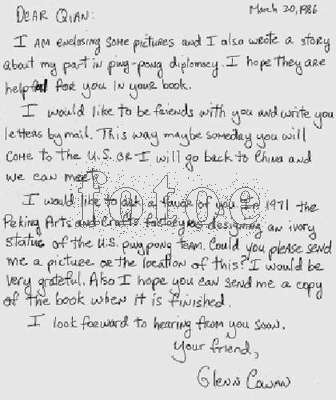 March 20, 1986
DEAR QIAN:
I AM enclosing some pictures and I also wrote a story
about my part in ping-pong diplomacy. I hope they are
helpful for you in your book.
I would like to be friends with you and write you
letters by mail. This way maybe someday you will
come to the U.S. or I will go back to China and
we can meet.
I would like to ask a favor of you. In 1971 the
Peking Arts and Crafts factory was designing an ivory
statue of the U.S. ping pong team. Could you please send
me a picture or the location of this? I would be
very grateful. Also I hope you can send me a copy
of the book when it is finished.
I look forward to hearing from you soon.
Your friend,
Glenn Cowan
fotoe